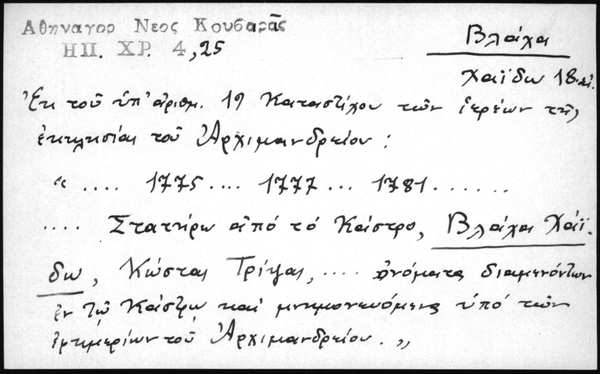 Ἀθηναγορ Νεος Κουβαρᾶς
ΗΠ. ΧΡ. 4,25
Βλάχα
Χαΐδω 18.αἰ.
Ἐκ τοῦ ὑπ' ἀριθμ. 19 Καταστίχου τῶν ἱερέων τῆς
ἐκκλησίας τοῦ Ἀρχιμανδρείου :
" .... 1775 .... 1777 ... 1781 ......
.... Στατήρω ἀπό τό Κάστρο, Βλάχα Χάϊ-
δω, Κώστας Τρίψας, .... ὀνόματα διαμενόντων
ἐν τῷ Κάστρῳ καί μνημονευόμενα ὑπό τῶν
ἐφημερίων τοῦ Ἀρχιμανδρείου . "